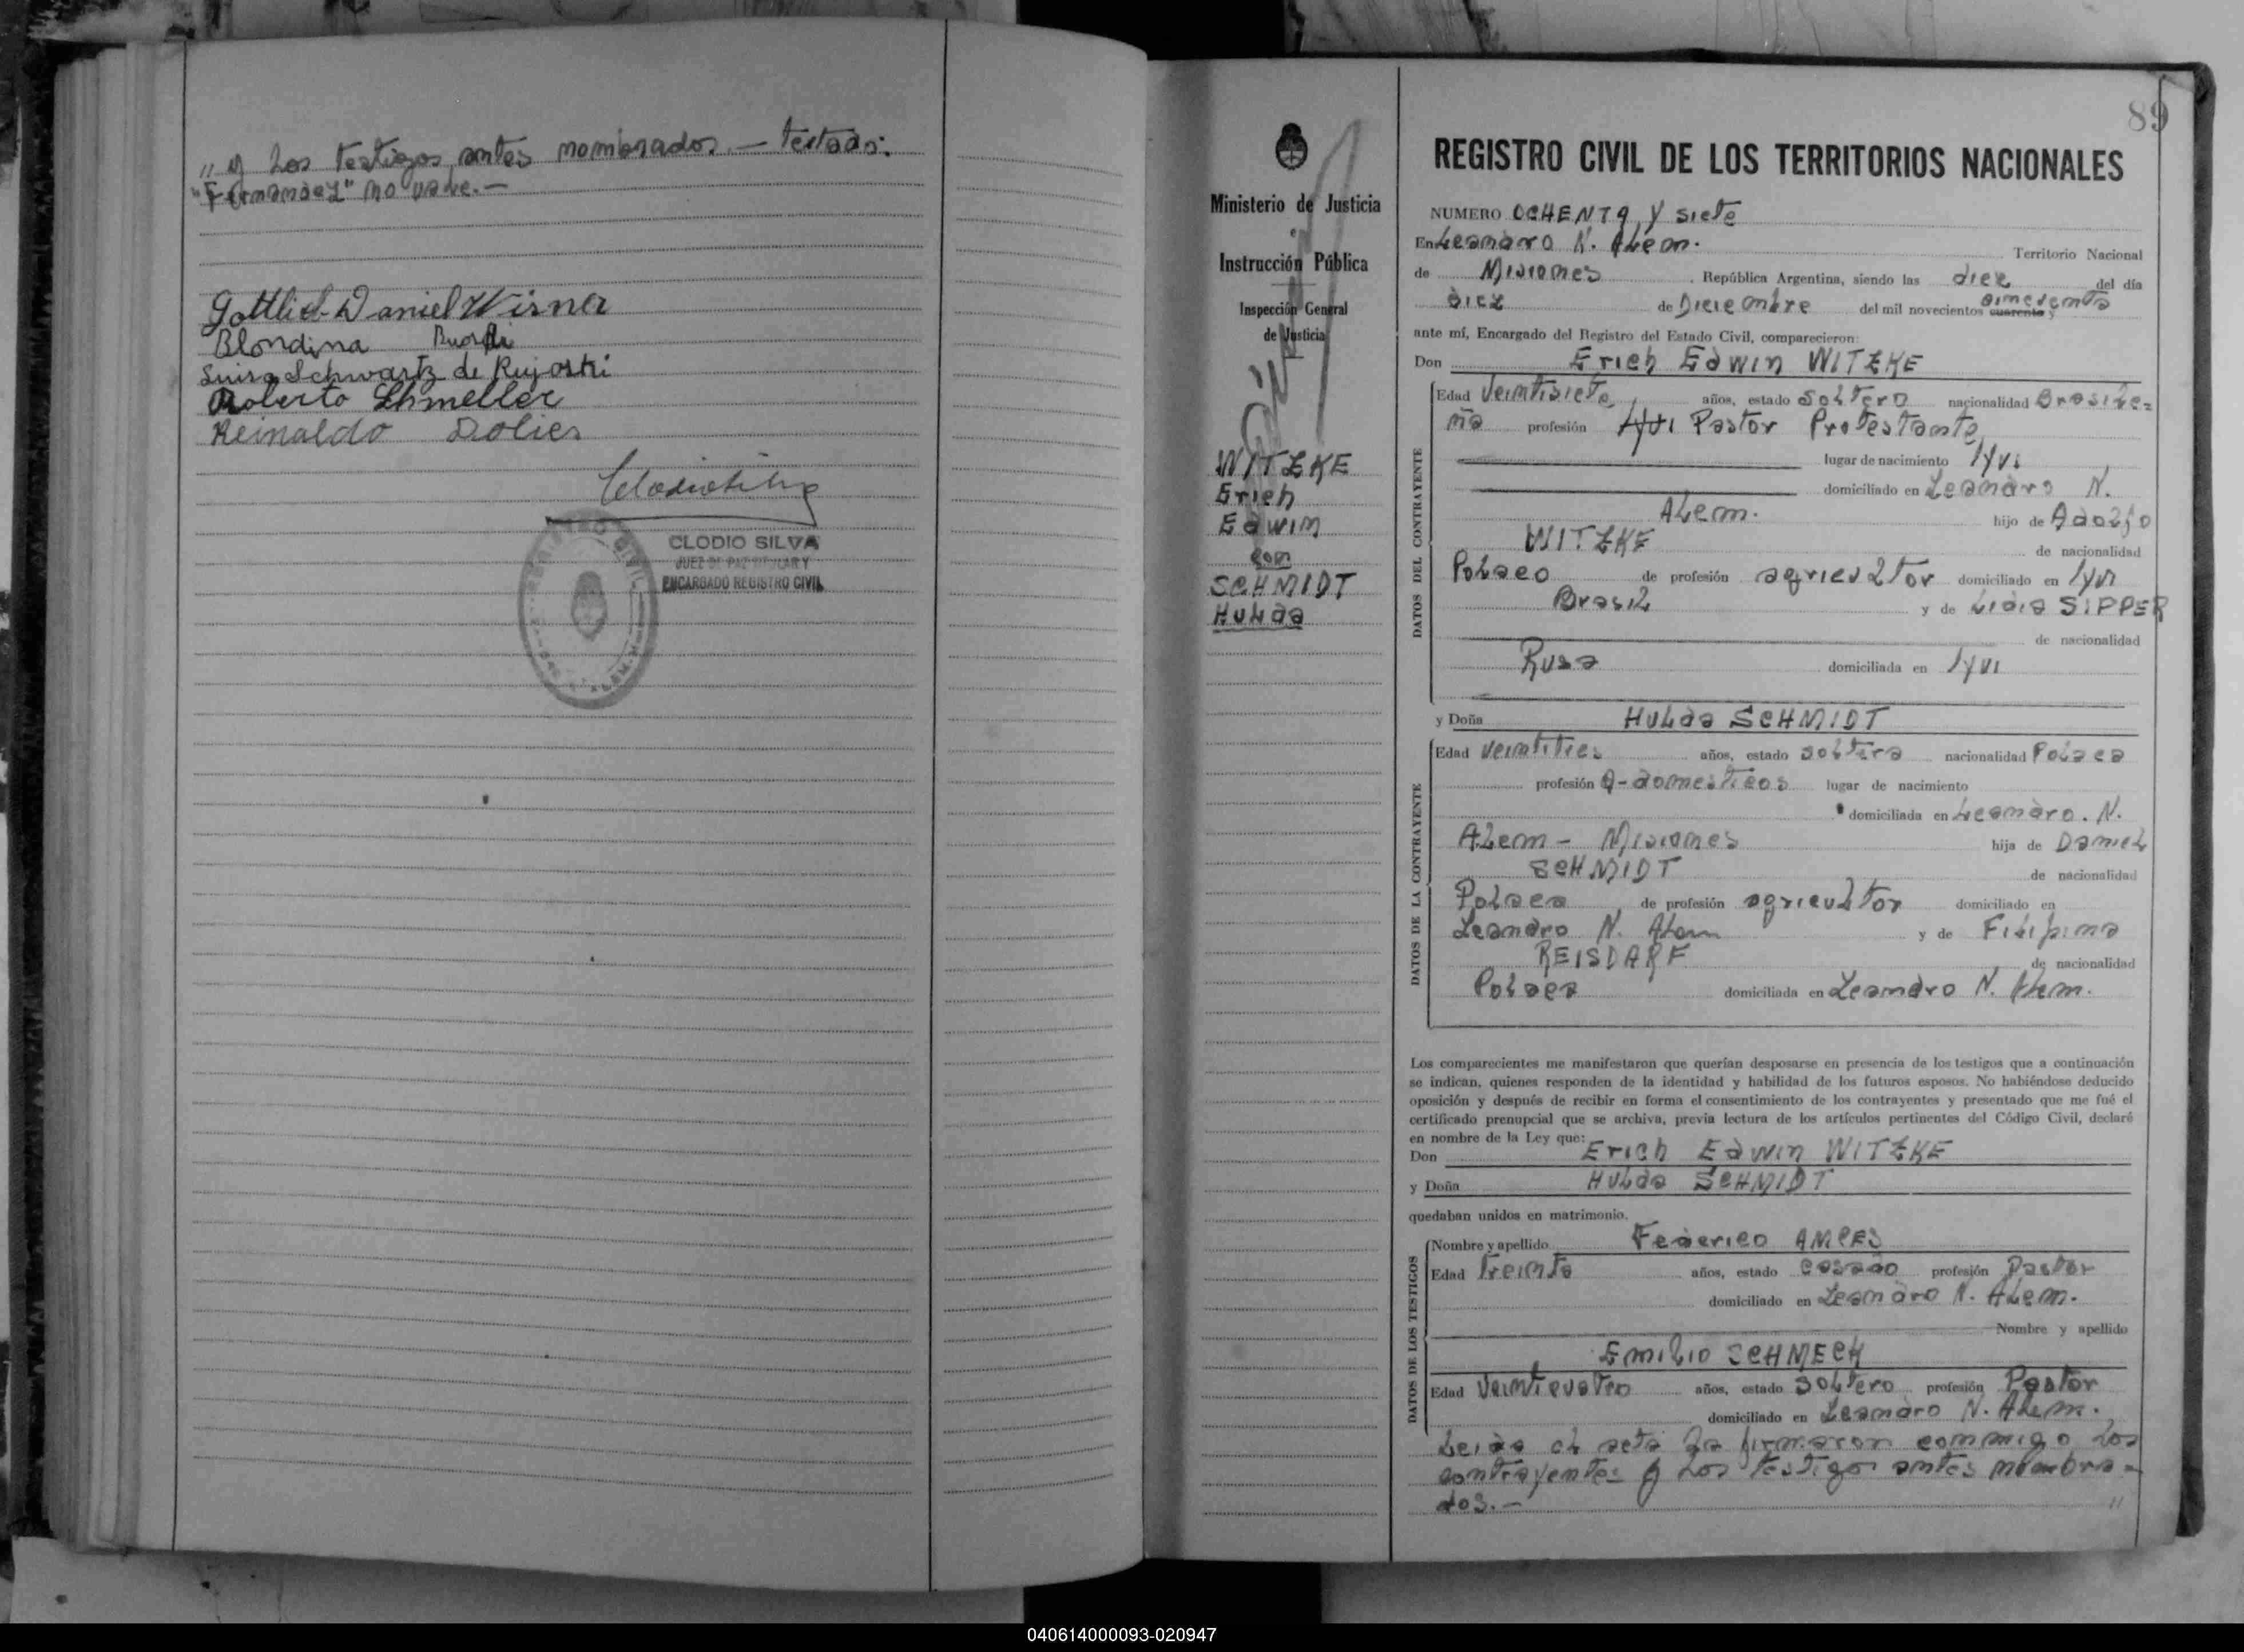 " y los testigos antes nombrados.— testado:
"Fernandez" no vale.—
Gottlieb Daniel Wirner
Blondina
Luisa Schwartz de Rujostri
Roberto Schmeller
Reinaldo Dolies
CLODIO SILVA
JUEZ DE PAZ TITULAR Y
ENCARGADO REGISTRO CIVIL
REGISTRO CIVIL
89
Ministerio de Justicia
e
Instrucción Pública
Inspección General
de Justicia
WITZKE
Erich
Edwin
con
SCHMIDT
Hulda
REGISTRO CIVIL DE LOS TERRITORIOS NACIONALES
NUMERO OCHENTA Y siete
En Leandro N. Alem. Territorio Nacional
de Misiones, República Argentina, siendo las diez del día
diez de Diciembre del mil novecientos cuarenta y cincuenta
ante mí, Encargado del Registro del Estado Civil, comparecieron:
Don Erich Edwin WITZKE
DATOS DEL CONTRAYENTE
Edad veintisiete años, estado soltero nacionalidad Brasile=
ña profesión Pastor Protestante
lugar de nacimiento Iyui
domiciliado en Leandro N.
Alem. hijo de Adolfo
WITZKE de nacionalidad
Polaco de profesión agricultor domiciliado en Iyui
Brasil y de Lidia SIPPER
de nacionalidad
Rusa domiciliada en Iyui
y Doña Hulda SCHMIDT
DATOS DE LA CONTRAYENTE
Edad veintitres años, estado soltera nacionalidad Polaca
profesión Q-domesticos lugar de nacimiento
domiciliada en Leandro. N.
Alem - Misiones hija de Daniel
SCHMIDT de nacionalidad
Polaca de profesión agricultor domiciliado en
Leandro N. Alem y de Filipina
REISDARF de nacionalidad
Polaca domiciliada en Leandro N. Alem.
Los comparecientes me manifestaron que querían desposarse en presencia de los testigos que a continuación
se indican, quienes responden de la identidad y habilidad de los futuros esposos. No habiéndose deducido
oposición y después de recibir en forma el consentimiento de los contrayentes y presentado que me fué el
certificado prenupcial que se archiva, previa lectura de los artículos pertinentes del Código Civil, declaré
en nombre de la Ley que:
Don Erich Edwin WITZKE
y Doña Hulda SCHMIDT
quedaban unidos en matrimonio.
DATOS DE LOS TESTIGOS
Nombre y apellido Federico AMPES
Edad treinta años, estado casado profesión Pastor
domiciliado en Leandro N. Alem.
Nombre y apellido
Emilio SCHMECH
Edad veinticuatro años, estado soltero profesión Pastor
domiciliado en Leandro N. Alem.
Leida el acta la firmaron conmigo los
contrayentes y los testigos antes nombra=
dos.— "
040614000093-020947